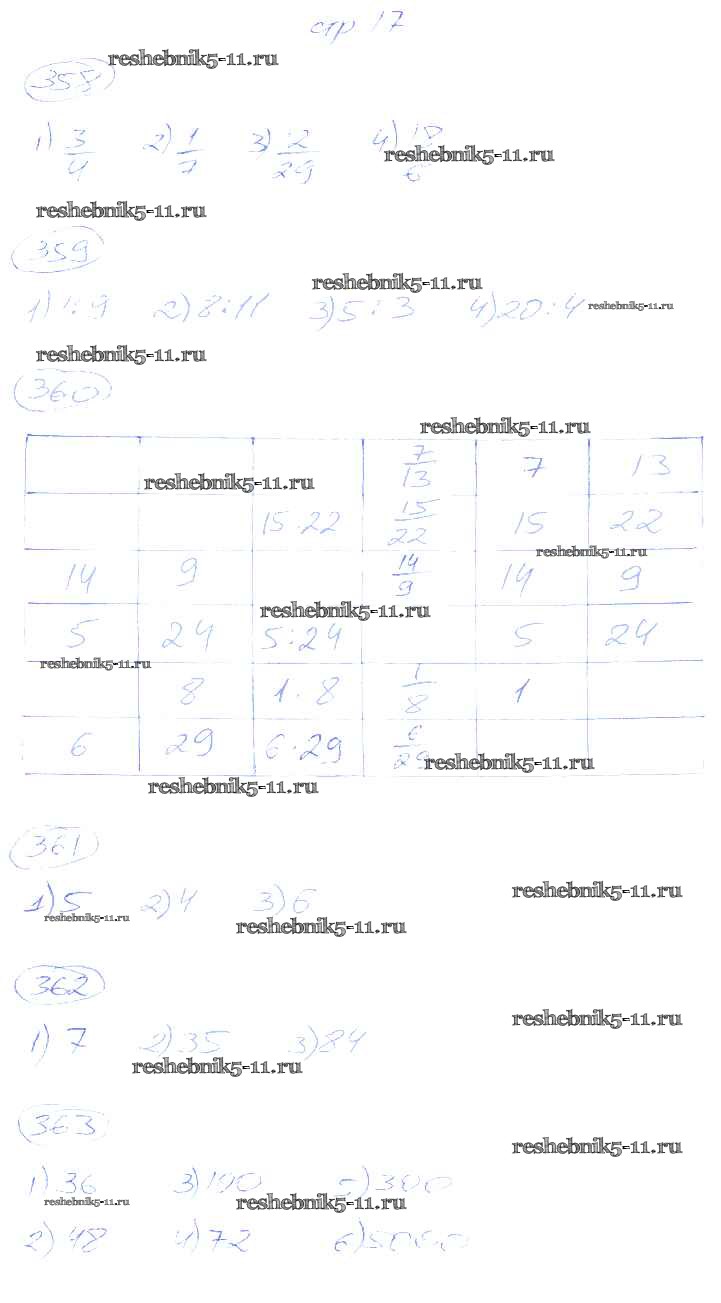 стр. 17
reshebnik5-11.ru
358
1) 3/4 2) 1/7 3) 2/29 4) 18/6
reshebnik5-11.ru
reshebnik5-11.ru
359
reshebnik5-11.ru
1) 1:9 2) 8:11 3) 5:3 4) 20:4 reshebnik5-11.ru
reshebnik5-11.ru
360
reshebnik5-11.ru
7/13 7 13
reshebnik5-11.ru
15:22 15/22 15 22
reshebnik5-11.ru
14 9 14/9 14 9
reshebnik5-11.ru
5 24 5:24 5 24
reshebnik5-11.ru
8 1:8 1/8 1
6 29 6:29 6/29
reshebnik5-11.ru
reshebnik5-11.ru
361
reshebnik5-11.ru
1) 5 2) 4 3) 6
reshebnik5-11.ru
reshebnik5-11.ru
362
reshebnik5-11.ru
1) 7 2) 35 3) 84
reshebnik5-11.ru
363
reshebnik5-11.ru
1) 36 3) 100 5) 300
reshebnik5-11.ru
reshebnik5-11.ru
2) 48 4) 72 6) 5000